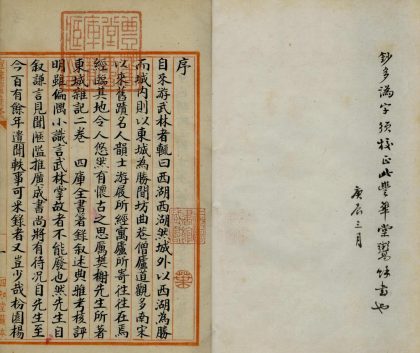 鈔多字須校正此豐華堂書也
庚辰三月
豐華堂書庫寶藏印
序
自來游武林者輒曰西湖西湖然城外以西湖為勝
而城内則以東城為勝閭坊曲巷僧廬道觀多南宋
以來舊蹟名人韻士游屐所經寓廬所寄往往在焉
經臨其地令人悠然有懷古之思厲樊榭先生所著
東城雜記二卷　四庫全書著錄敘述典雅考核詳
明雖偏隅小識言武林掌故者不能廢也然先生自
敘謙言見聞陋隘推廣成書尚將有待況自先生至
今百有餘年遺聞軼事可采錄者又豈少哉枌園楊